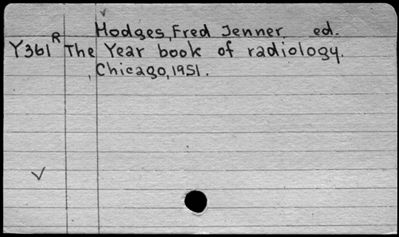 Hodges, Fred Jenner, ed.
Y361 R The Year book of radiology.
Chicago, 1951.